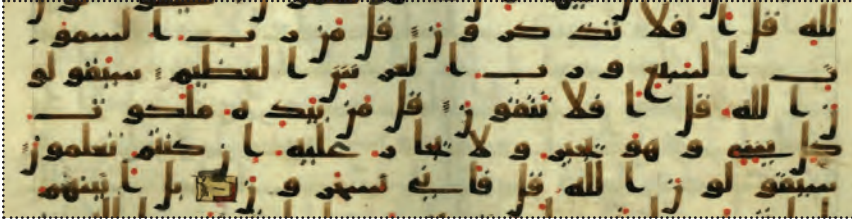 لله قل ا فلا تذكرون قل من رب السمو
ت السبع و رب العرش العظيم سيقولو
ن الله قل ا فلا تتقون قل من بيده ملكوت
كل شى و هو يجير و لا يجار عليه ا ن كنتم تعلمون
سيقولون الله قل فانى تسحرون بل ا تينهم